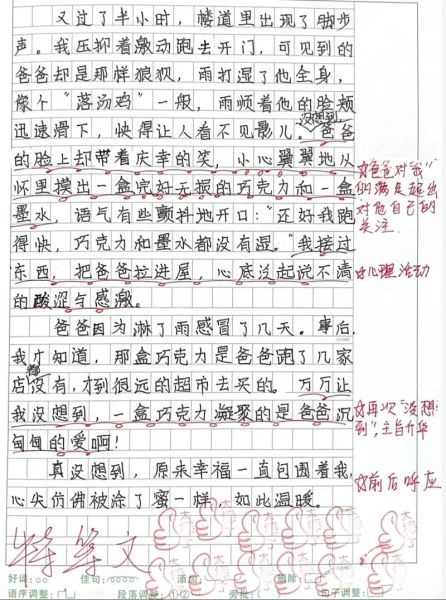 又过了半小时，楼道里出现了脚步
声。我压抑着激动跑去开门，可见到的
爸爸却是那样狼狈，雨打湿了他全身，
像个“落汤鸡”一般，雨顺着他的脸颊
没想到
迅速滑下，快得让人看不见影儿。爸爸
的脸上却带着庆幸的笑，小心翼翼地从
怀里摸出一盒完好无损的巧克力和一盒
墨水，语气有些颤抖地开口：“还好我跑
得快，巧克力和墨水都没有湿。”我接过
东西，把爸爸拉进屋，心底泛起说不清
的酸涩与感激。
爸爸因为淋了雨感冒了几天。事后，
我才知道，那盒巧克力是爸爸跑了几家
店都没有，才到很远的超市去买的。万万让
我没想到，一盒巧克力凝聚的是爸爸沉
甸甸的爱啊！
真没想到，原来幸福一直包围着我，
心尖仿佛被涂了蜜一样，如此温暖。
爸爸对“我”
的满足超过
对他自己的
关注
心理活动
再次“没想
到”，主旨升华
前后呼应
特等文
好词：○○ 佳句：○○○○ 添加： 删除：
语序调整： 段落调整：①② 旁批：( ) 句子调整：